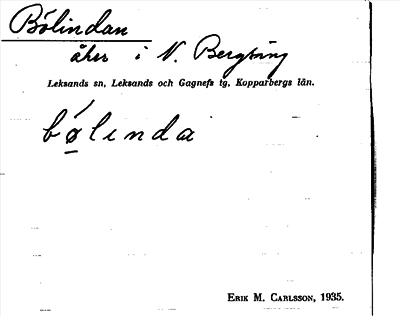 Bölindan
åker i N. Bergsäng
Leksands sn, Leksands och Gagnefs tg, Kopparbergs län.
bǿ̲linda
ERIK M. CARLSSON, 1935.